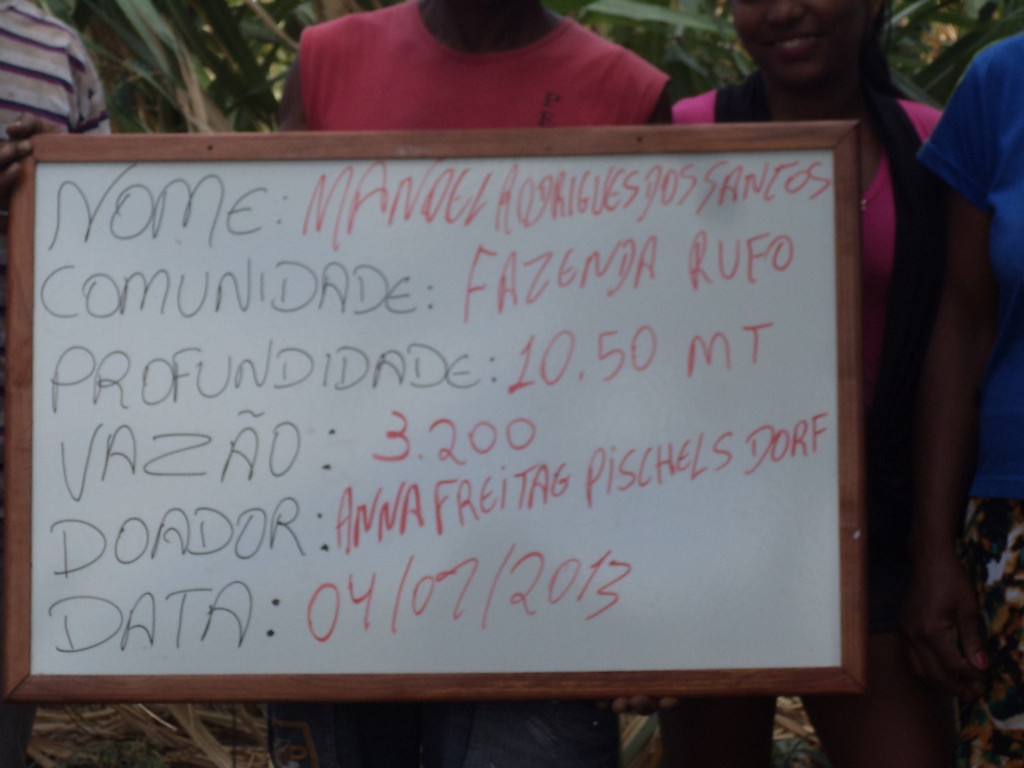 NOME: MANOEL RODRIGUES DOS SANTOS
COMUNIDADE: FAZENDA RUFO
PROFUNDIDADE: 10.50 MT
VAZÃO: 3.200
DOADOR: ANNA FREITAG PISCHELS DORF
DATA: 04/07/2013